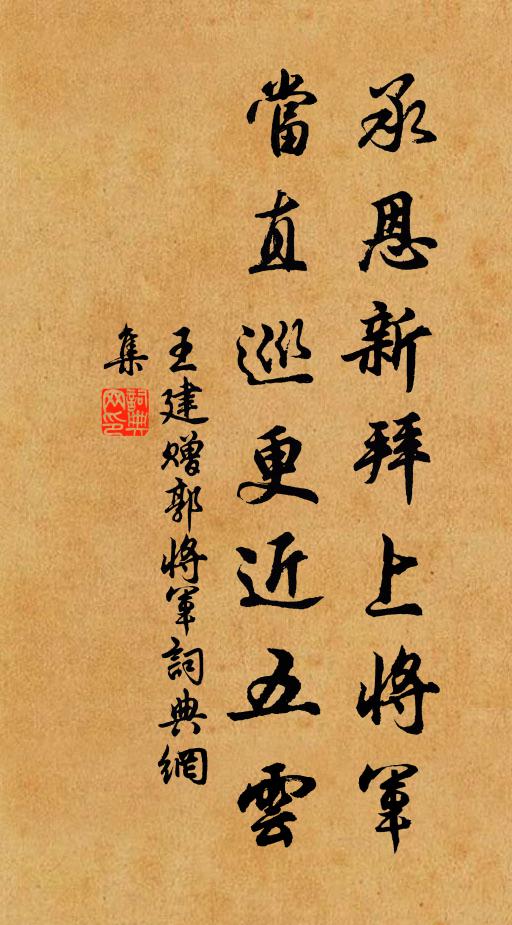 承恩新拜上將軍
當直巡更近五雲
王建贈郭將軍詞典網
集
詞典
网印